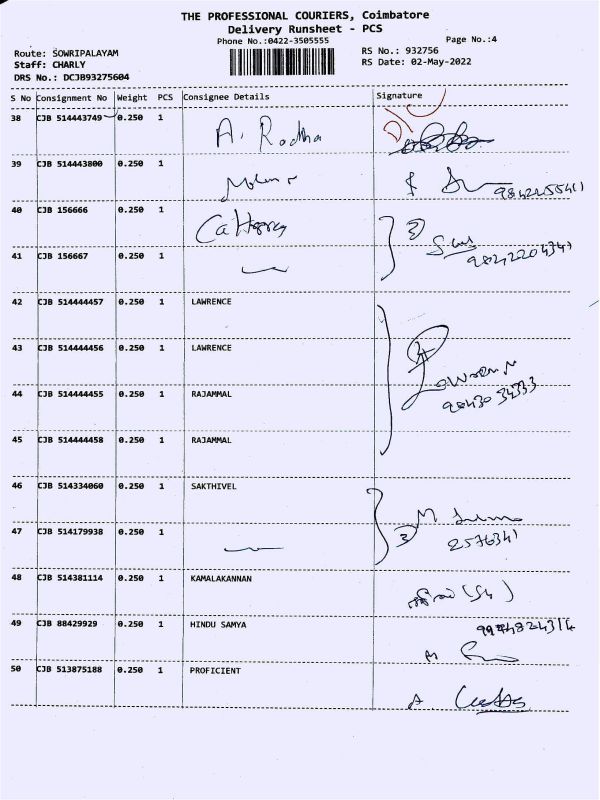 THE PROFESSIONAL COURIERS, Coimbatore
Delivery Runsheet - PCS
Phone No.:0422-3505555
Page No.:4
Route: SOWRIPALAYAM
RS No.: 932756
Staff: CHARLY
RS Date: 02-May-2022
DRS No.: DCJB93275604
S No Consignment No Weight PCS Consignee Details Signature
38 CJB 514443749 0.250 1 A. Radha
39 CJB 514443800 0.250 1
40 CJB 156666 0.250 1
41 CJB 156667 0.250 1 9842204341
42 CJB 514444457 0.250 1 LAWRENCE
43 CJB 514444456 0.250 1 LAWRENCE
44 CJB 514444455 0.250 1 RAJAMMAL 9843034333
45 CJB 514444458 0.250 1 RAJAMMAL
46 CJB 514334060 0.250 1 SAKTHIVEL M
47 CJB 514179938 0.250 1 2576341
48 CJB 514381114 0.250 1 KAMALAKANNAN
49 CJB 88429929 0.250 1 HINDU SAMYA
50 CJB 513875188 0.250 1 PROFICIENT